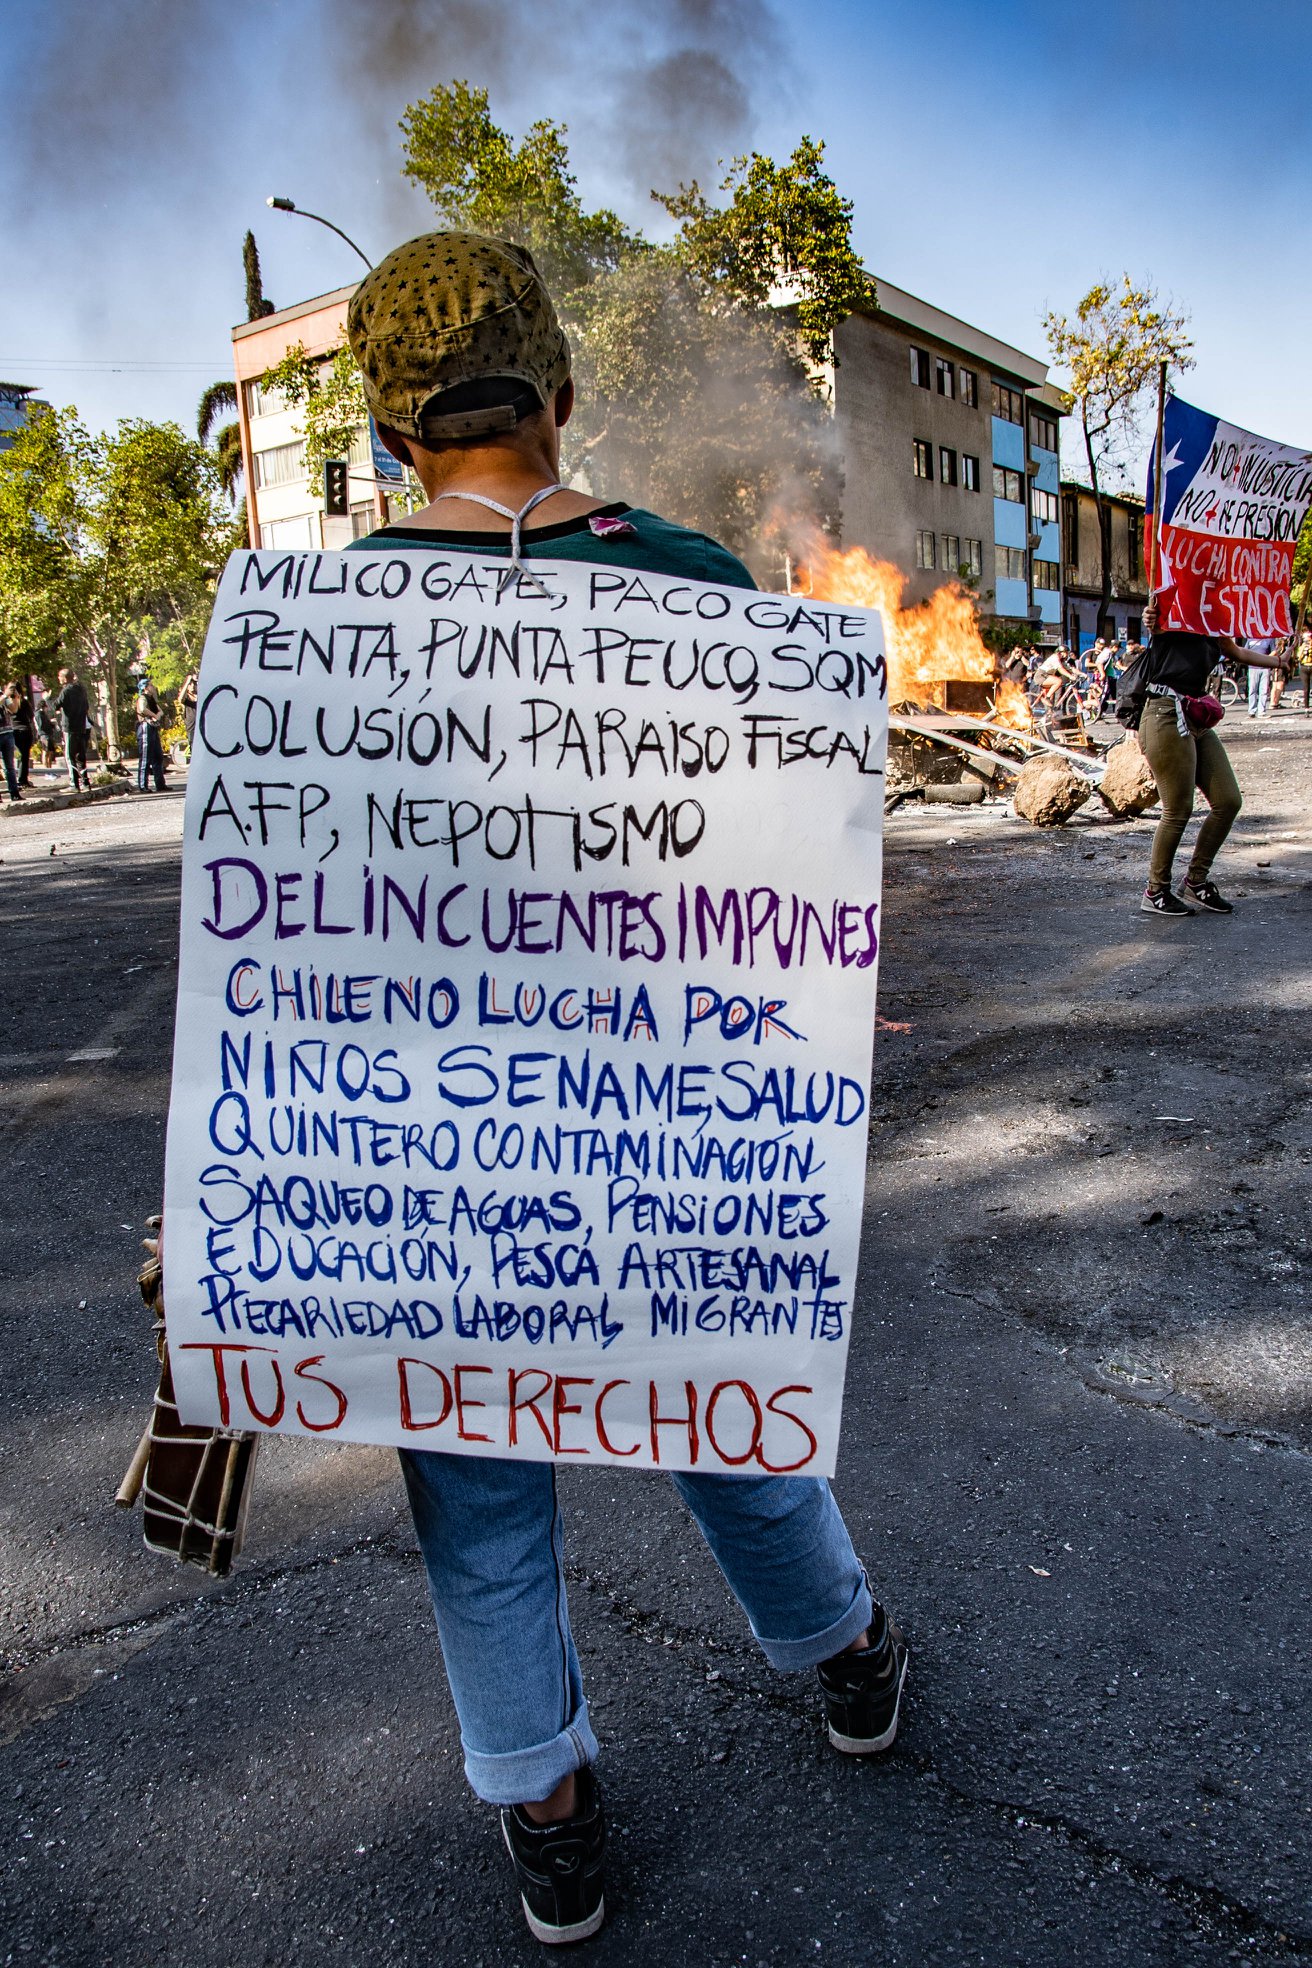 MILICO GATE, PACO GATE
PENTA, PUNTA PEUCO, SQM
COLUSIÓN, PARAISO FISCAL
A.FP, NEPOTISMO
DELINCUENTES IMPUNES
CHILENO LUCHA POR
NIÑOS SENAME, SALUD
QUINTERO CONTAMINACIÓN
SAQUEO DE AGUAS, PENSIONES
EDUCACIÓN, PESCA ARTESANAL
PRECARIEDAD LABORAL, MIGRANTES
TUS DERECHOS
NO + INJUSTICIA
NO + REPRESION
LUCHA CONTRA
EL ESTADO